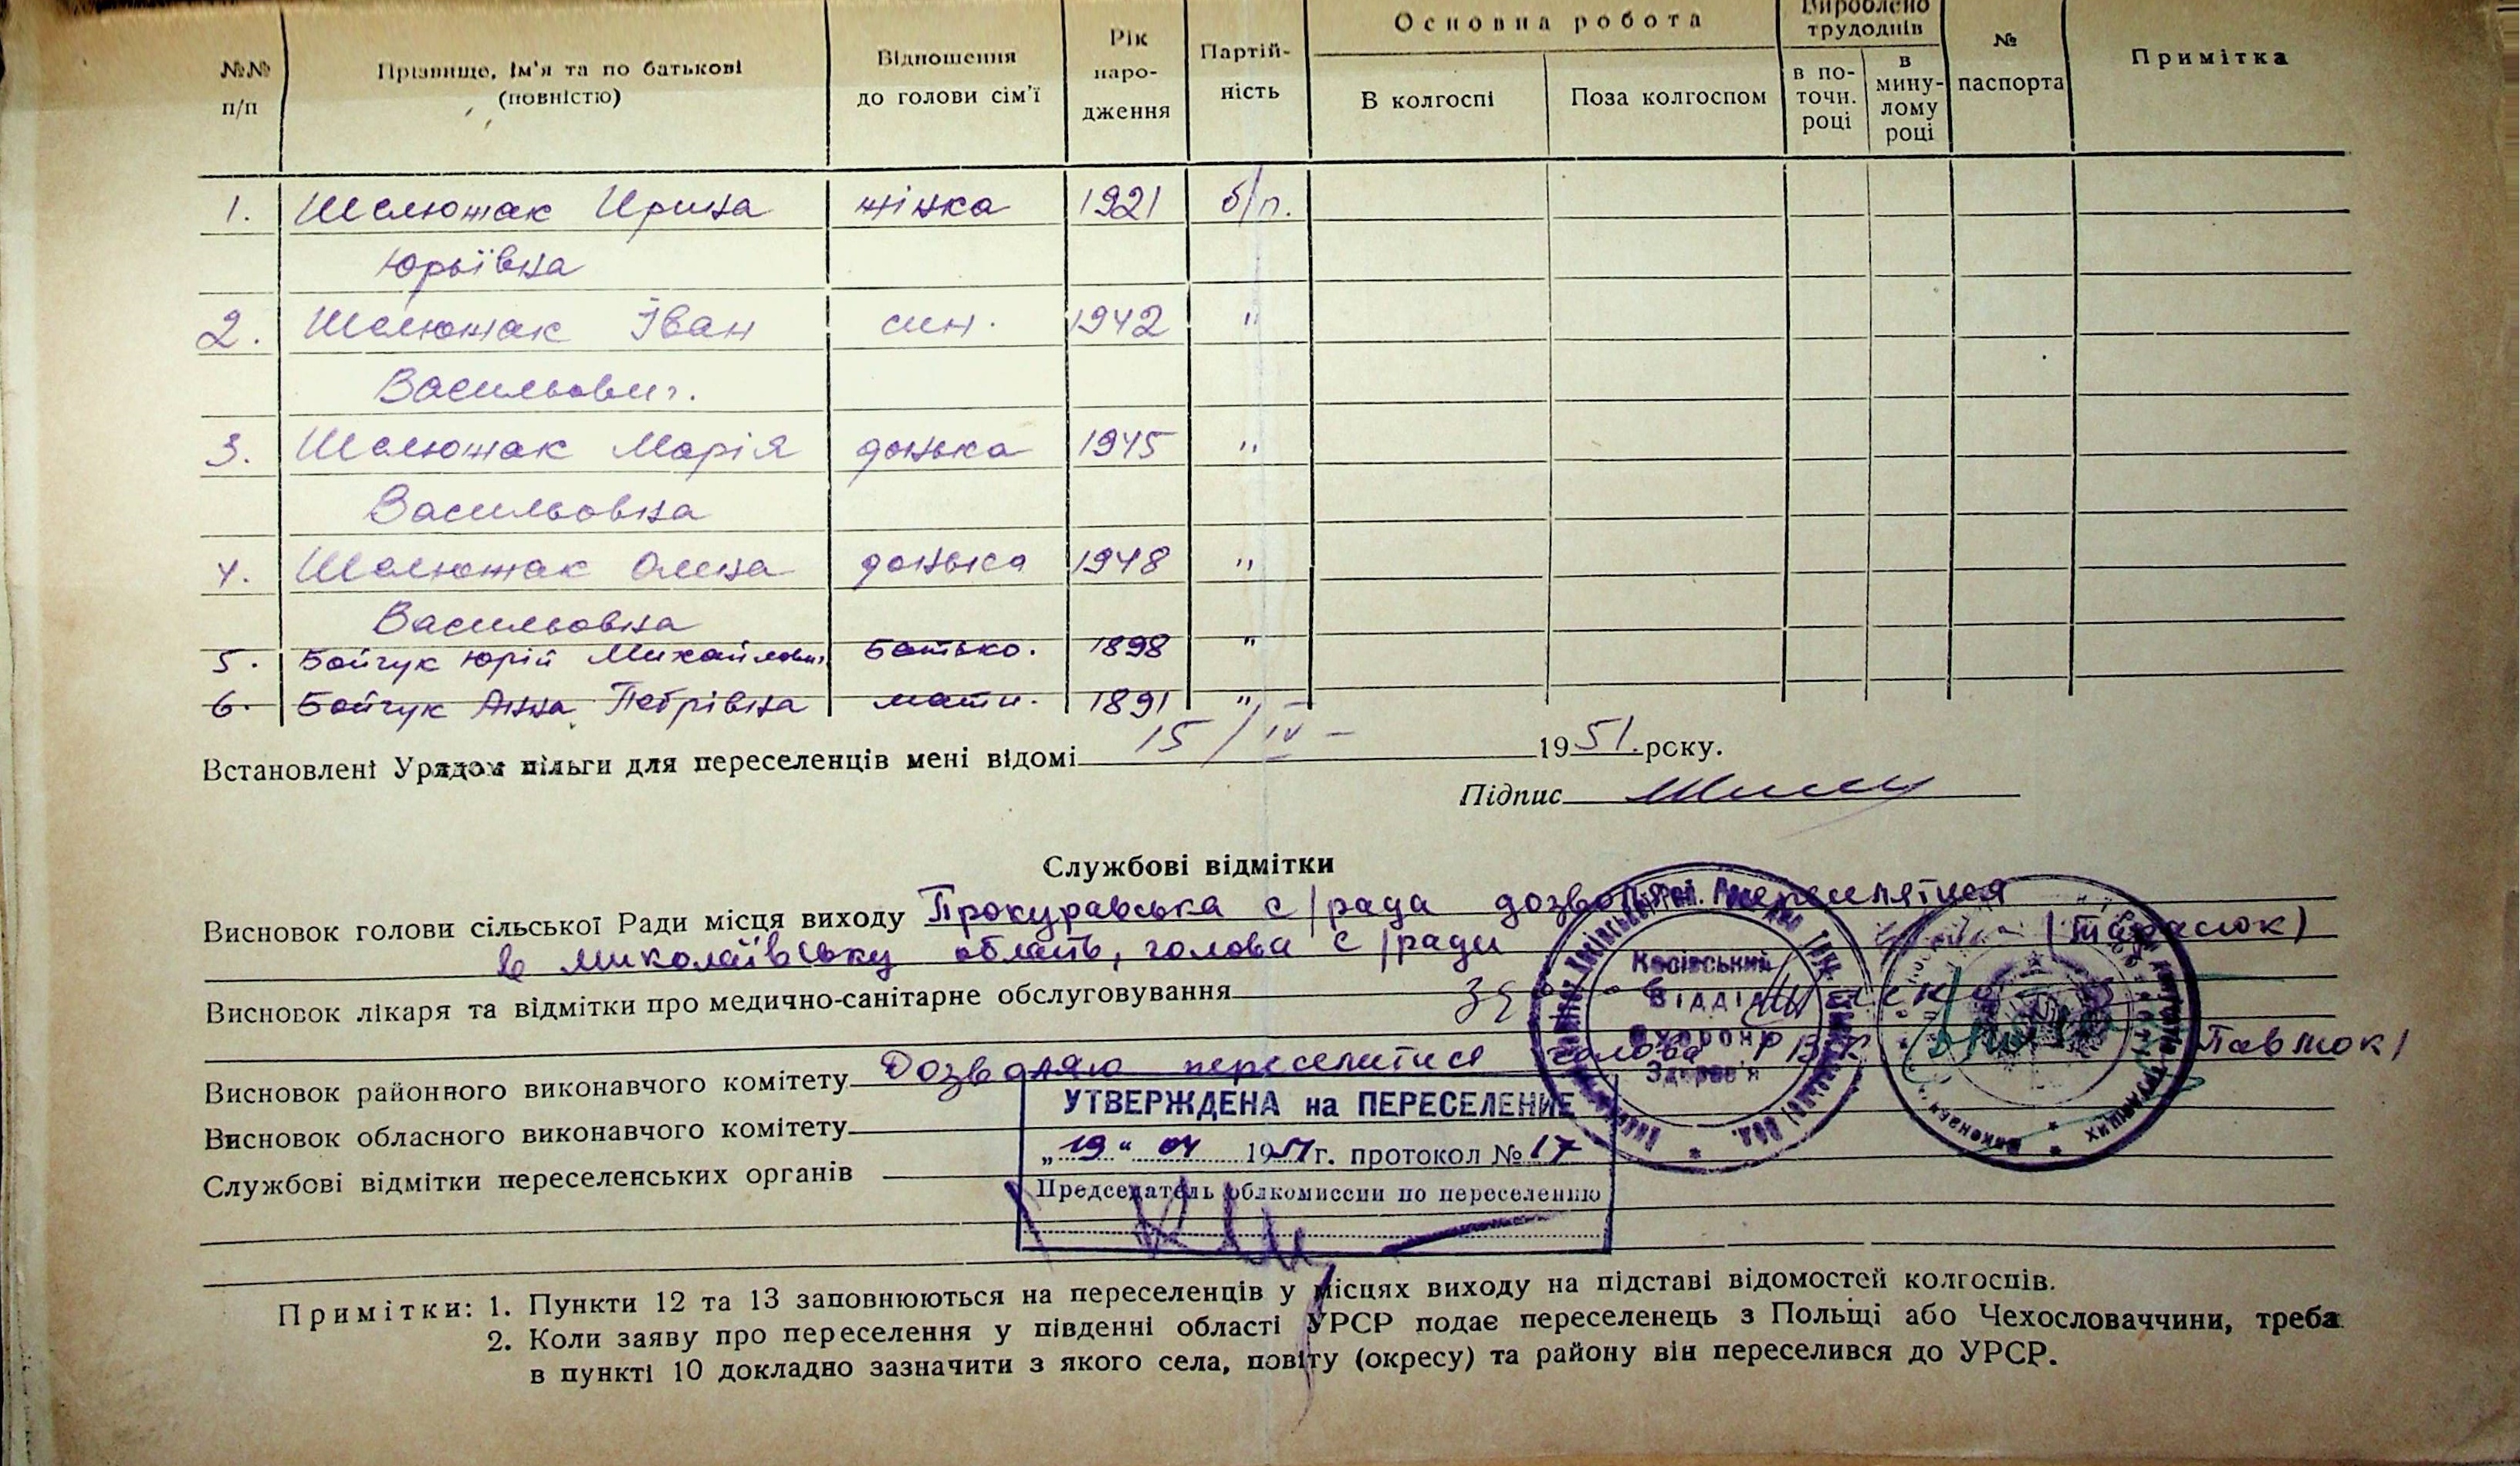 №№ п/п
Прізвище, ім'я та по батькові (повністю)
Відношення до голови сім'ї
Рік наро-дження
Партій-ність
Основна робота
В колгоспі
Поза колгоспом
Вироблено трудоднів
в по-точн. році
в мину-лому році
№ паспорта
Примітка
1. Шелюжак Ирина жінка 1921 б/п.
Юрьївна
2. Шелюжак Іван син. 1942 "
Васильович.
3. Шелюжак Марія донька 1945 "
Васильовна
4. Шелюжак Олена донька 1948 "
Васильовна
5. Бойчук Юрій Михайлович Батько. 1898 "
6. Бойчук Анна Петрівна мати. 1891 "
Встановлені Урядом пільги для переселенців мені відомі 15/IV- 1951. року.
Підпис
Службові відмітки
Висновок голови сільської Ради місця виходу Прокуравська с/рада дозволяє переселятися
в миколаївську область, голова с/ради (Тарасюк)
Висновок лікаря та відмітки про медично-санітарне обслуговування
Косівський
Відділ
Охорони
Здоров'я
Висновок районного виконавчого комітету Дозволяю переселитися голова РВК Павлюк)
УТВЕРЖДЕНА на ПЕРЕСЕЛЕНИЕ
Висновок обласного виконавчого комітету
„19" 04 1951 г. протокол № 17
Службові відмітки переселенських органів
Председатель облкомиссии по переселению
Примітки: 1. Пункти 12 та 13 заповнюються на переселенців у місцях виходу на підставі відомостей колгоспів.
2. Коли заяву про переселення у південні області УРСР подає переселенець з Польщі або Чехословаччини, треба
в пункті 10 докладно зазначити з якого села, повіту (окресу) та району він переселився до УРСР.